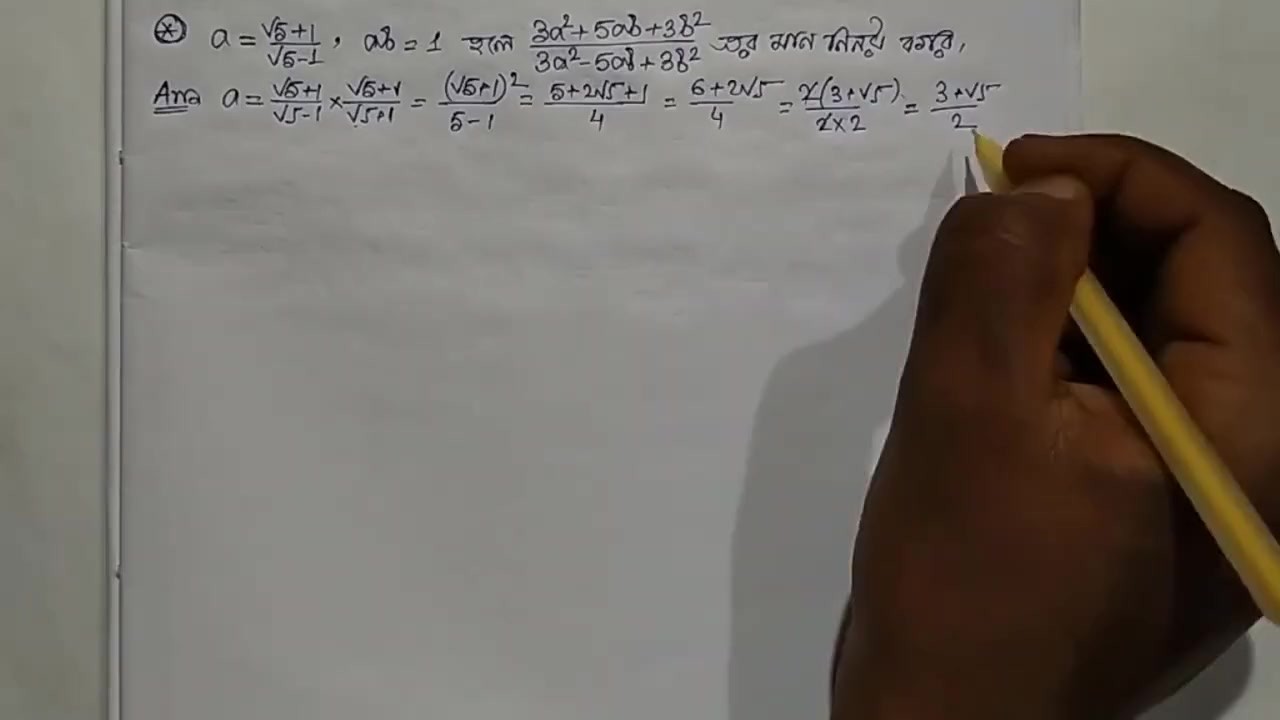 ⊛ a = (√5+1)/(√5-1), ab = 1 হলে (3a²+5ab+3b²)/(3a²-5ab+3b²) এর মান নির্ণয় করো,
Ans a = (√5+1)/(√5-1) × (√5+1)/(√5+1) = (√5+1)²/(5-1) = (5+2√5+1)/4 = (6+2√5)/4 = 2(3+√5)/(2×2) = (3+√5)/2